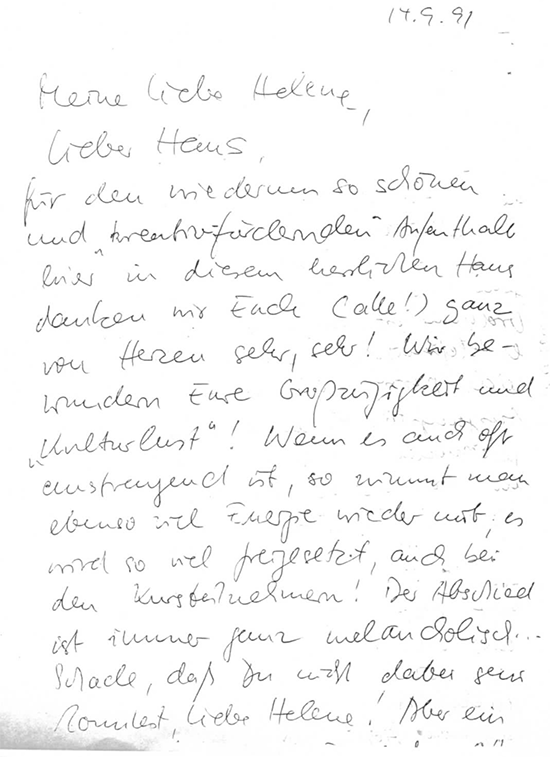 14.9.91
Meine liebe Helene,
lieber Hans,
für den wiederum so schönen
und "kreativfördernden" Aufenthalt
hier in diesem herrlichen Haus
danken wir Euch (alle!) ganz
von Herzen sehr, sehr! Wir be-
wundern Eure Großzügigkeit und
„Kulturlust"! Wenn es auch oft
anstrengend ist, so nimmt man
ebenso viel Energie wieder mit, es
wird so viel freigesetzt, auch bei
den Kursteilnehmern! Der Abschied
ist immer ganz melancholisch...
Schade, daß Du nicht dabei sein
konntest, liebe Helene! Aber ein